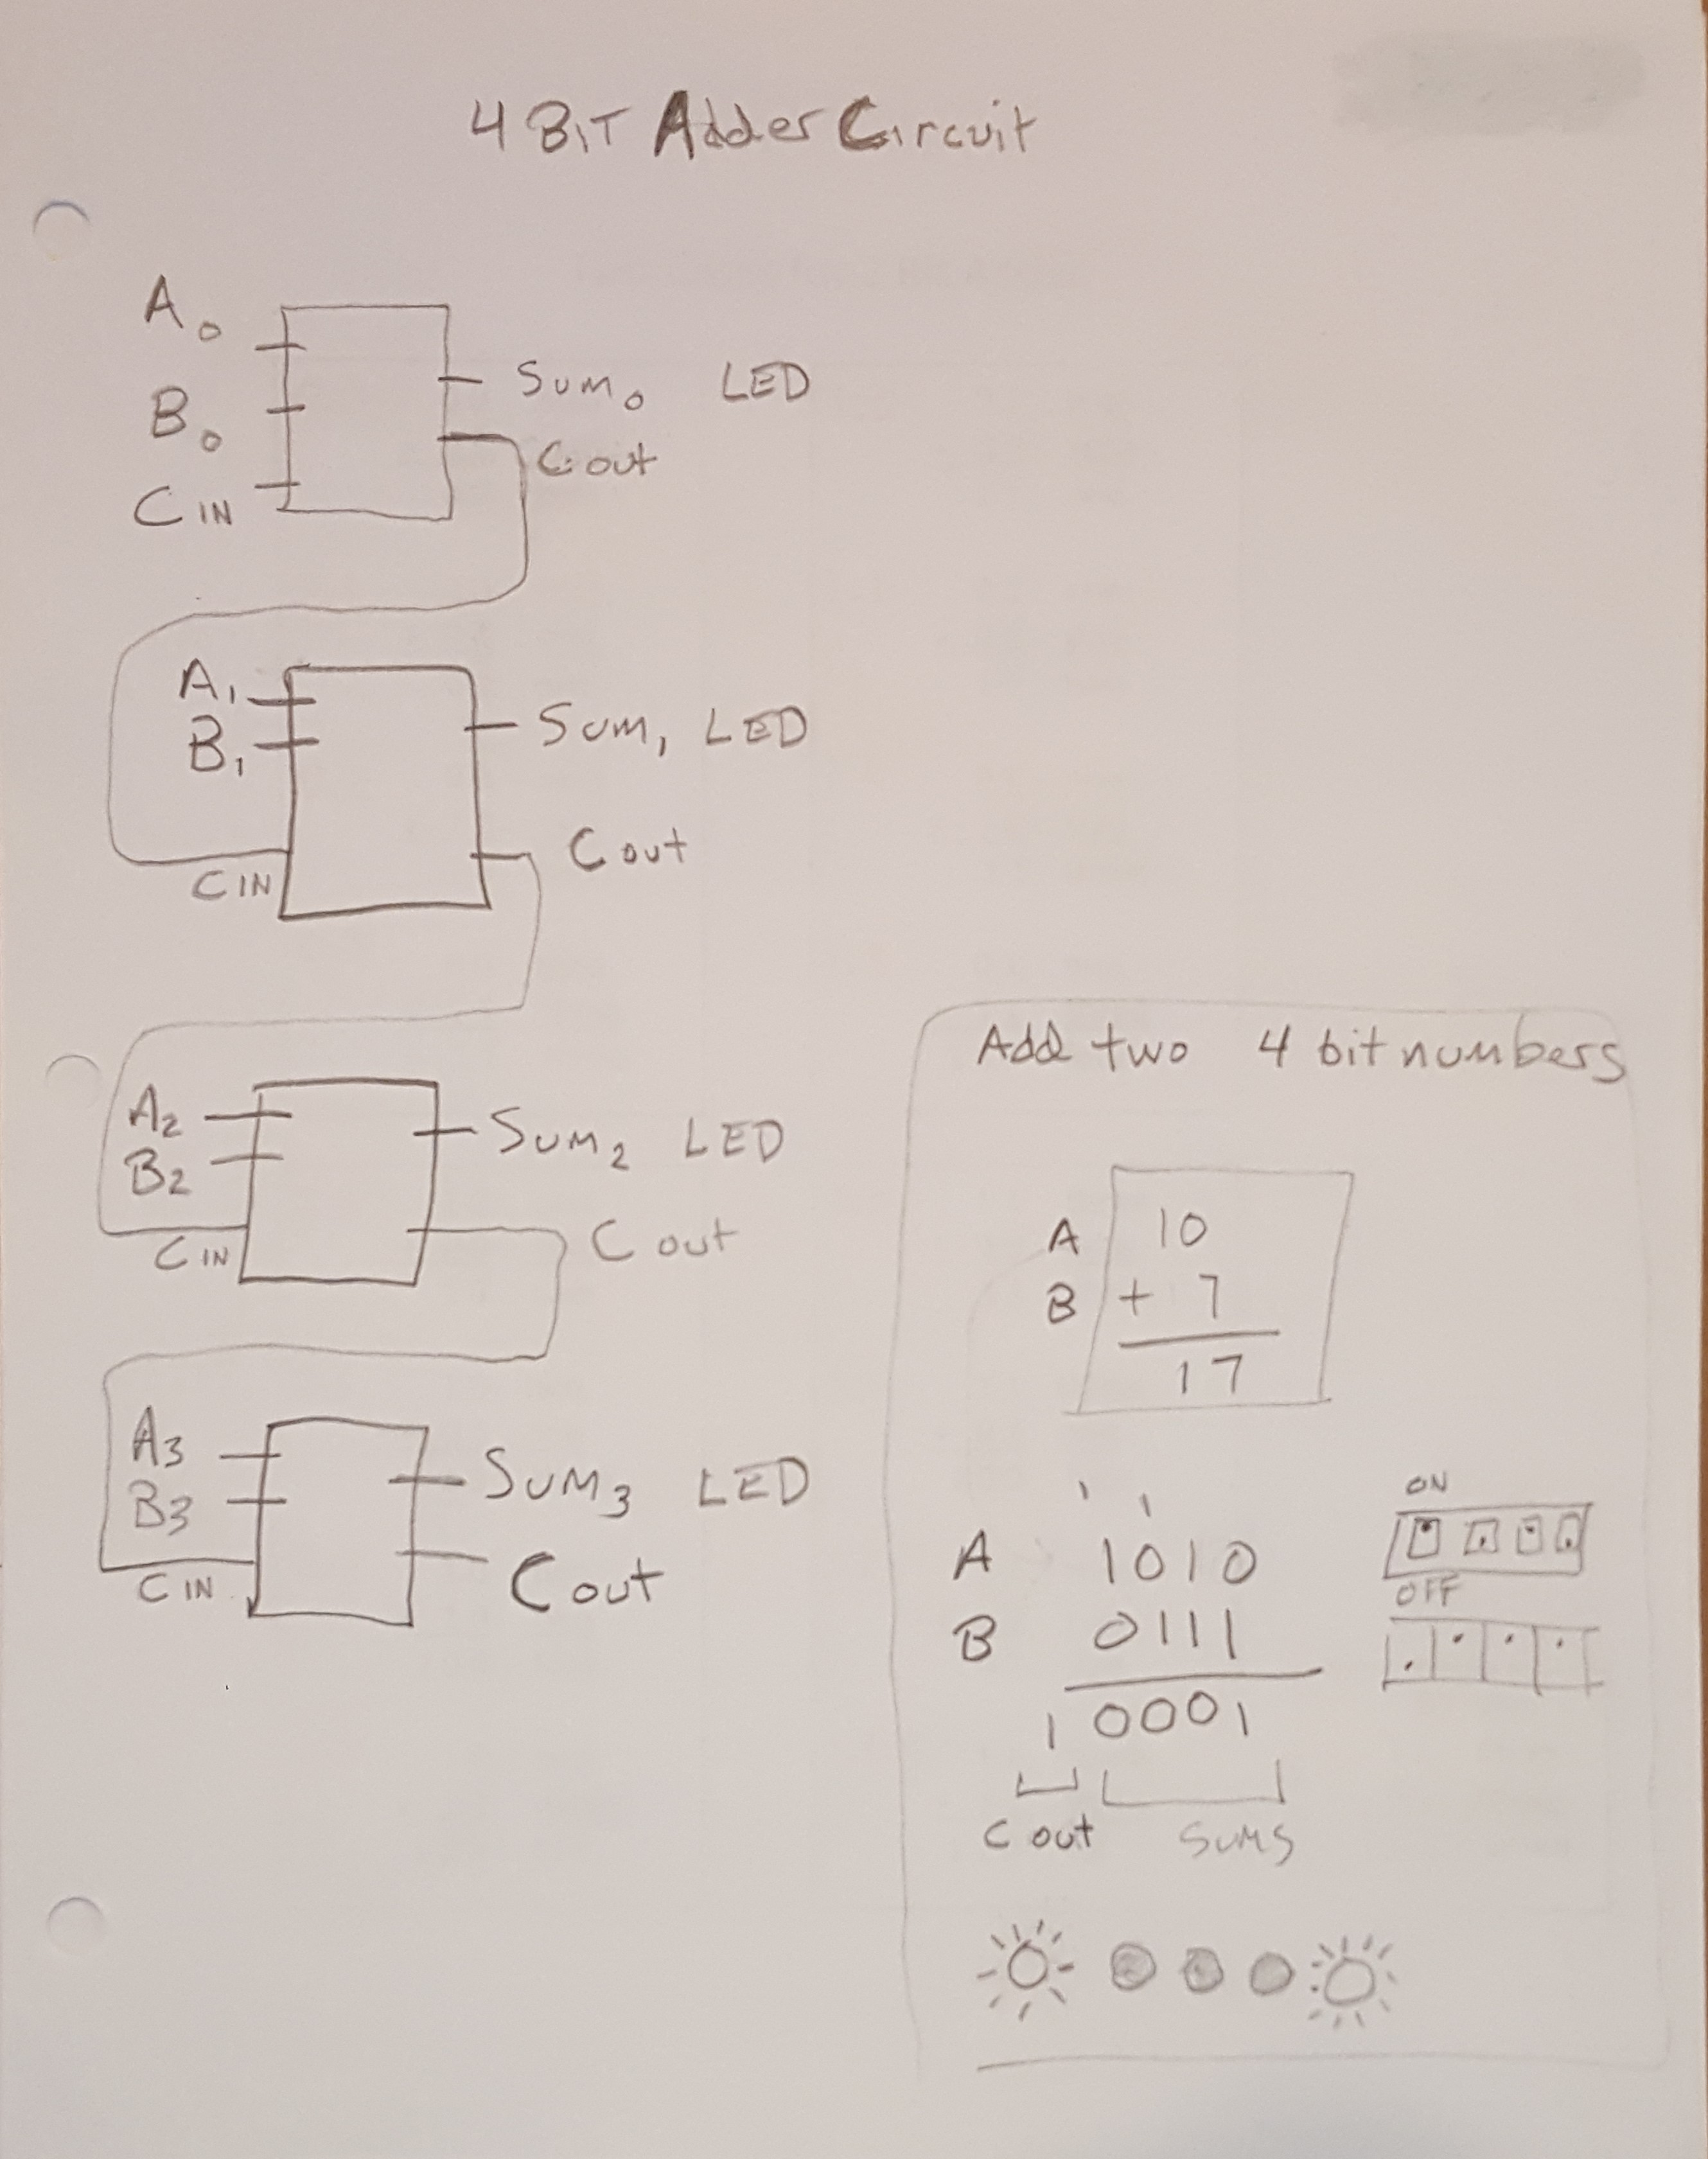 4 BIT Adder Circuit
A0
B0
C IN
Sum0 LED
C out
A1
B1
C IN
Sum1 LED
C out
A2
B2
C IN
Sum2 LED
C out
A3
B3
C IN
Sum3 LED
C out
Add two 4 bit numbers
A 10
B + 7
17
1 1
A 1010
B 0111
1 0001
C out Sums
ON
OFF